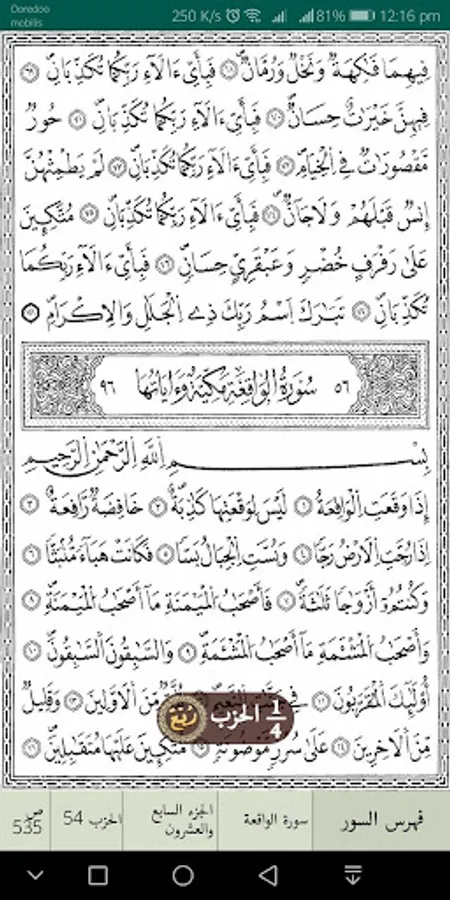 Ooredoo
mobilis
250 K/s 81% 12:16 pm
فِيهِمَا فَٰكِهَةٞ وَنَخْلٞ وَرُمَّانٞ ٦٧ فَبِأَيِّ ءَالَآءِ رَبِّكُمَا تُكَذِّبَانِ ٦٨
فِيهِنَّ خَيْرَٰتٌ حِسَانٞ ٦٩ فَبِأَيِّ ءَالَآءِ رَبِّكُمَا تُكَذِّبَانِ ٧٠ حُورٞ
مَّقْصُورَٰتٞ فِي اِ۬لْخِيَامِ ٧١ فَبِأَيِّ ءَالَآءِ رَبِّكُمَا تُكَذِّبَانِ ٧٢ لَمْ يَطْمِثْهُنَّ
إِنسٞ قَبْلَهُمْ وَلَا جَآنّٞ ٧٣ فَبِأَيِّ ءَالَآءِ رَبِّكُمَا تُكَذِّبَانِ ٧٤ مُتَّكِـِٕينَ
عَلَىٰ رَفْرَفٍ خُضْرٖ وَعَبْقَرِيٍّ حِسَانٖ ٧٥ فَبِأَيِّ ءَالَآءِ رَبِّكُمَا
تُكَذِّبَانِ ٧٦ تَبَٰرَكَ اَ۪سْمُ رَبِّكَ ذِے اِ۬لْجَلَٰلِ وَالِاكْرَامِ ٧٧
٥٦ سُورَةُ الوَاقِعَة مَكِيَّة وَءَايَاتُهَا ٩٦
بِسْمِ اِ۬للَّهِ اِ۬لرَّحْمَٰنِ اِ۬لرَّحِيمِ
إِذَا وَقَعَتِ اِ۬لْوَاقِعَةُ ١ لَيْسَ لِوَقْعَتِهَا كَاذِبَةٌ ٢ خَافِضَةٞ رَّافِعَةٌ ٣
اِذَا رُجَّتِ اِ۬لَارْضُ رَجّاٗ ٤ وَبُسَّتِ اِ۬لْجِبَالُ بَسّاٗ ٥ فَكَانَتْ هَبَآءٗ مُّنۢبَثّاٗ ٦
وَكُنتُمُۥٓ أَزْوَٰجاٗ ثَلَٰثَةٗ ٧ فَأَصْحَٰبُ اُ۬لْمَيْمَنَةِ مَآ أَصْحَٰبُ اُ۬لْمَيْمَنَةِ ٨
وَأَصْحَٰبُ اُ۬لْمَشْـَٔمَةِ مَآ أَصْحَٰبُ اُ۬لْمَشْـَٔمَةِ ٩ وَالسَّٰبِقُونَ اَ۬لسَّٰبِقُونَ ١٠
أُوْلَٰٓئِكَ اَ۬لْمُقَرَّبُونَ ١١ فِے جَنَّٰتِ اِ۬لنَّعِيمِ ثُلَّةٞ مِّنَ اَ۬لَاوَّلِينَ ١٣ وَقَلِيلٞ
مِّنَ اَ۬لَاخِرِينَ ١٤ عَلَىٰ سُرُرٖ مَّوْضُونَةٖ مُّتَّكِـِٕينَ عَلَيْهَا مُتَقَٰبِلِينَ ١٦
1/4 الحزب
ربع
فهرس السور
سورة الواقعة
الجزء السابع والعشرون
الحزب 54
ص 535